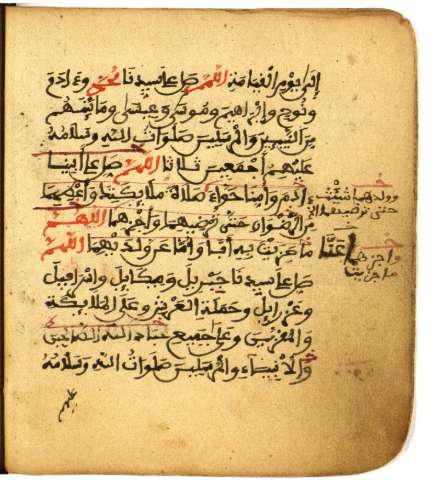 إلى يوم القيامة اللهم صل على سيدنا محمد وءادم
ونوح وإبراهيم وموسى وعيسى وما بينهم
من النبيين والمرسلين صلوات الله وسلامه
عليهم أجمعين ثلاثا اللهم صل على أبينا
ءادم وأمنا حواء صلاة ملائكتك وأعطهما
من الرضوان حتى ترضيهما واجزهما اللهم
عنا ما جزيت به أبا وأما عن ولديهما اللهم
صل على سيدنا جبريل وميكايل وإسرافيل
وعزرايل وحملة العرش وعلى الملايكة
والمقربين وعلى جميع عباد الله الصالحين
والأنبياء والمرسلين صلوات الله وسلامه
عليهم
وولدهما شيث
حتى
واجزهما
ما جزيت